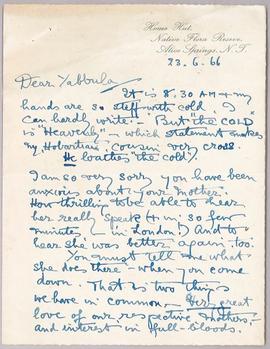 Home Hut,
Native Flora Reserve,
Alice Springs, N.T.
23.6.66
Dear Yabbula,
It is 8.30 AM & my
hands are so stiff with cold I
can hardly write. - But "the COLD"
is "Heavenly" - which statement makes
my, Hobartian, cousin very cross.
He loathes "the cold".
I am so very sorry you have been
anxious about your Mother.
How thrilling to be able to hear
her really speak (& in 30 few
minutes - in London!) And to
hear she was better again, too.
You must tell me what
she does there - when you come
down. That is two things
we have in common, - Very great
love of our respective Mothers,-
and interest in full-bloods.